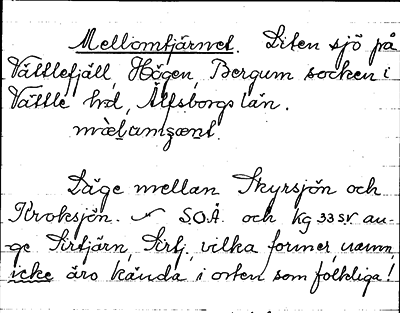 Mellomtjärnet. Liten sjö på
Vättlefjäll, Högen, Bergum socken i
Vättle hd, Älfsborgs län.
mæ̀lamçænt.
Läge mellan Skyrsjön och
Kroksjön. S.O.Å. och kg 33 SV an-
ge Sirtjärn, Sirtj, vilka former, namn,
icke äro kända i orten som folkliga!